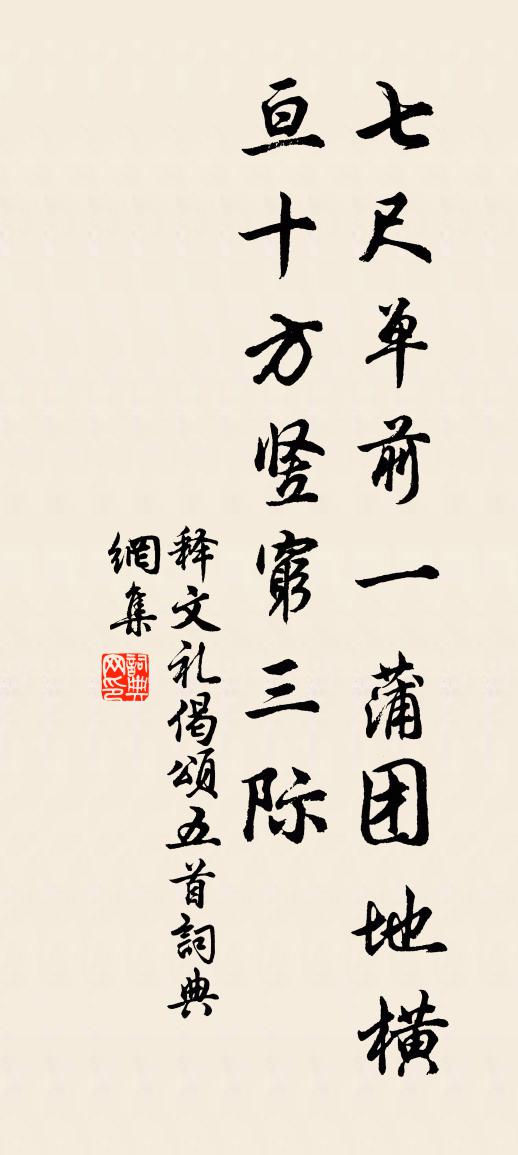 七尺单前一蒲团地横
亘十方竖穷三际
释文礼偈颂五首詞典
網集
詞典网印